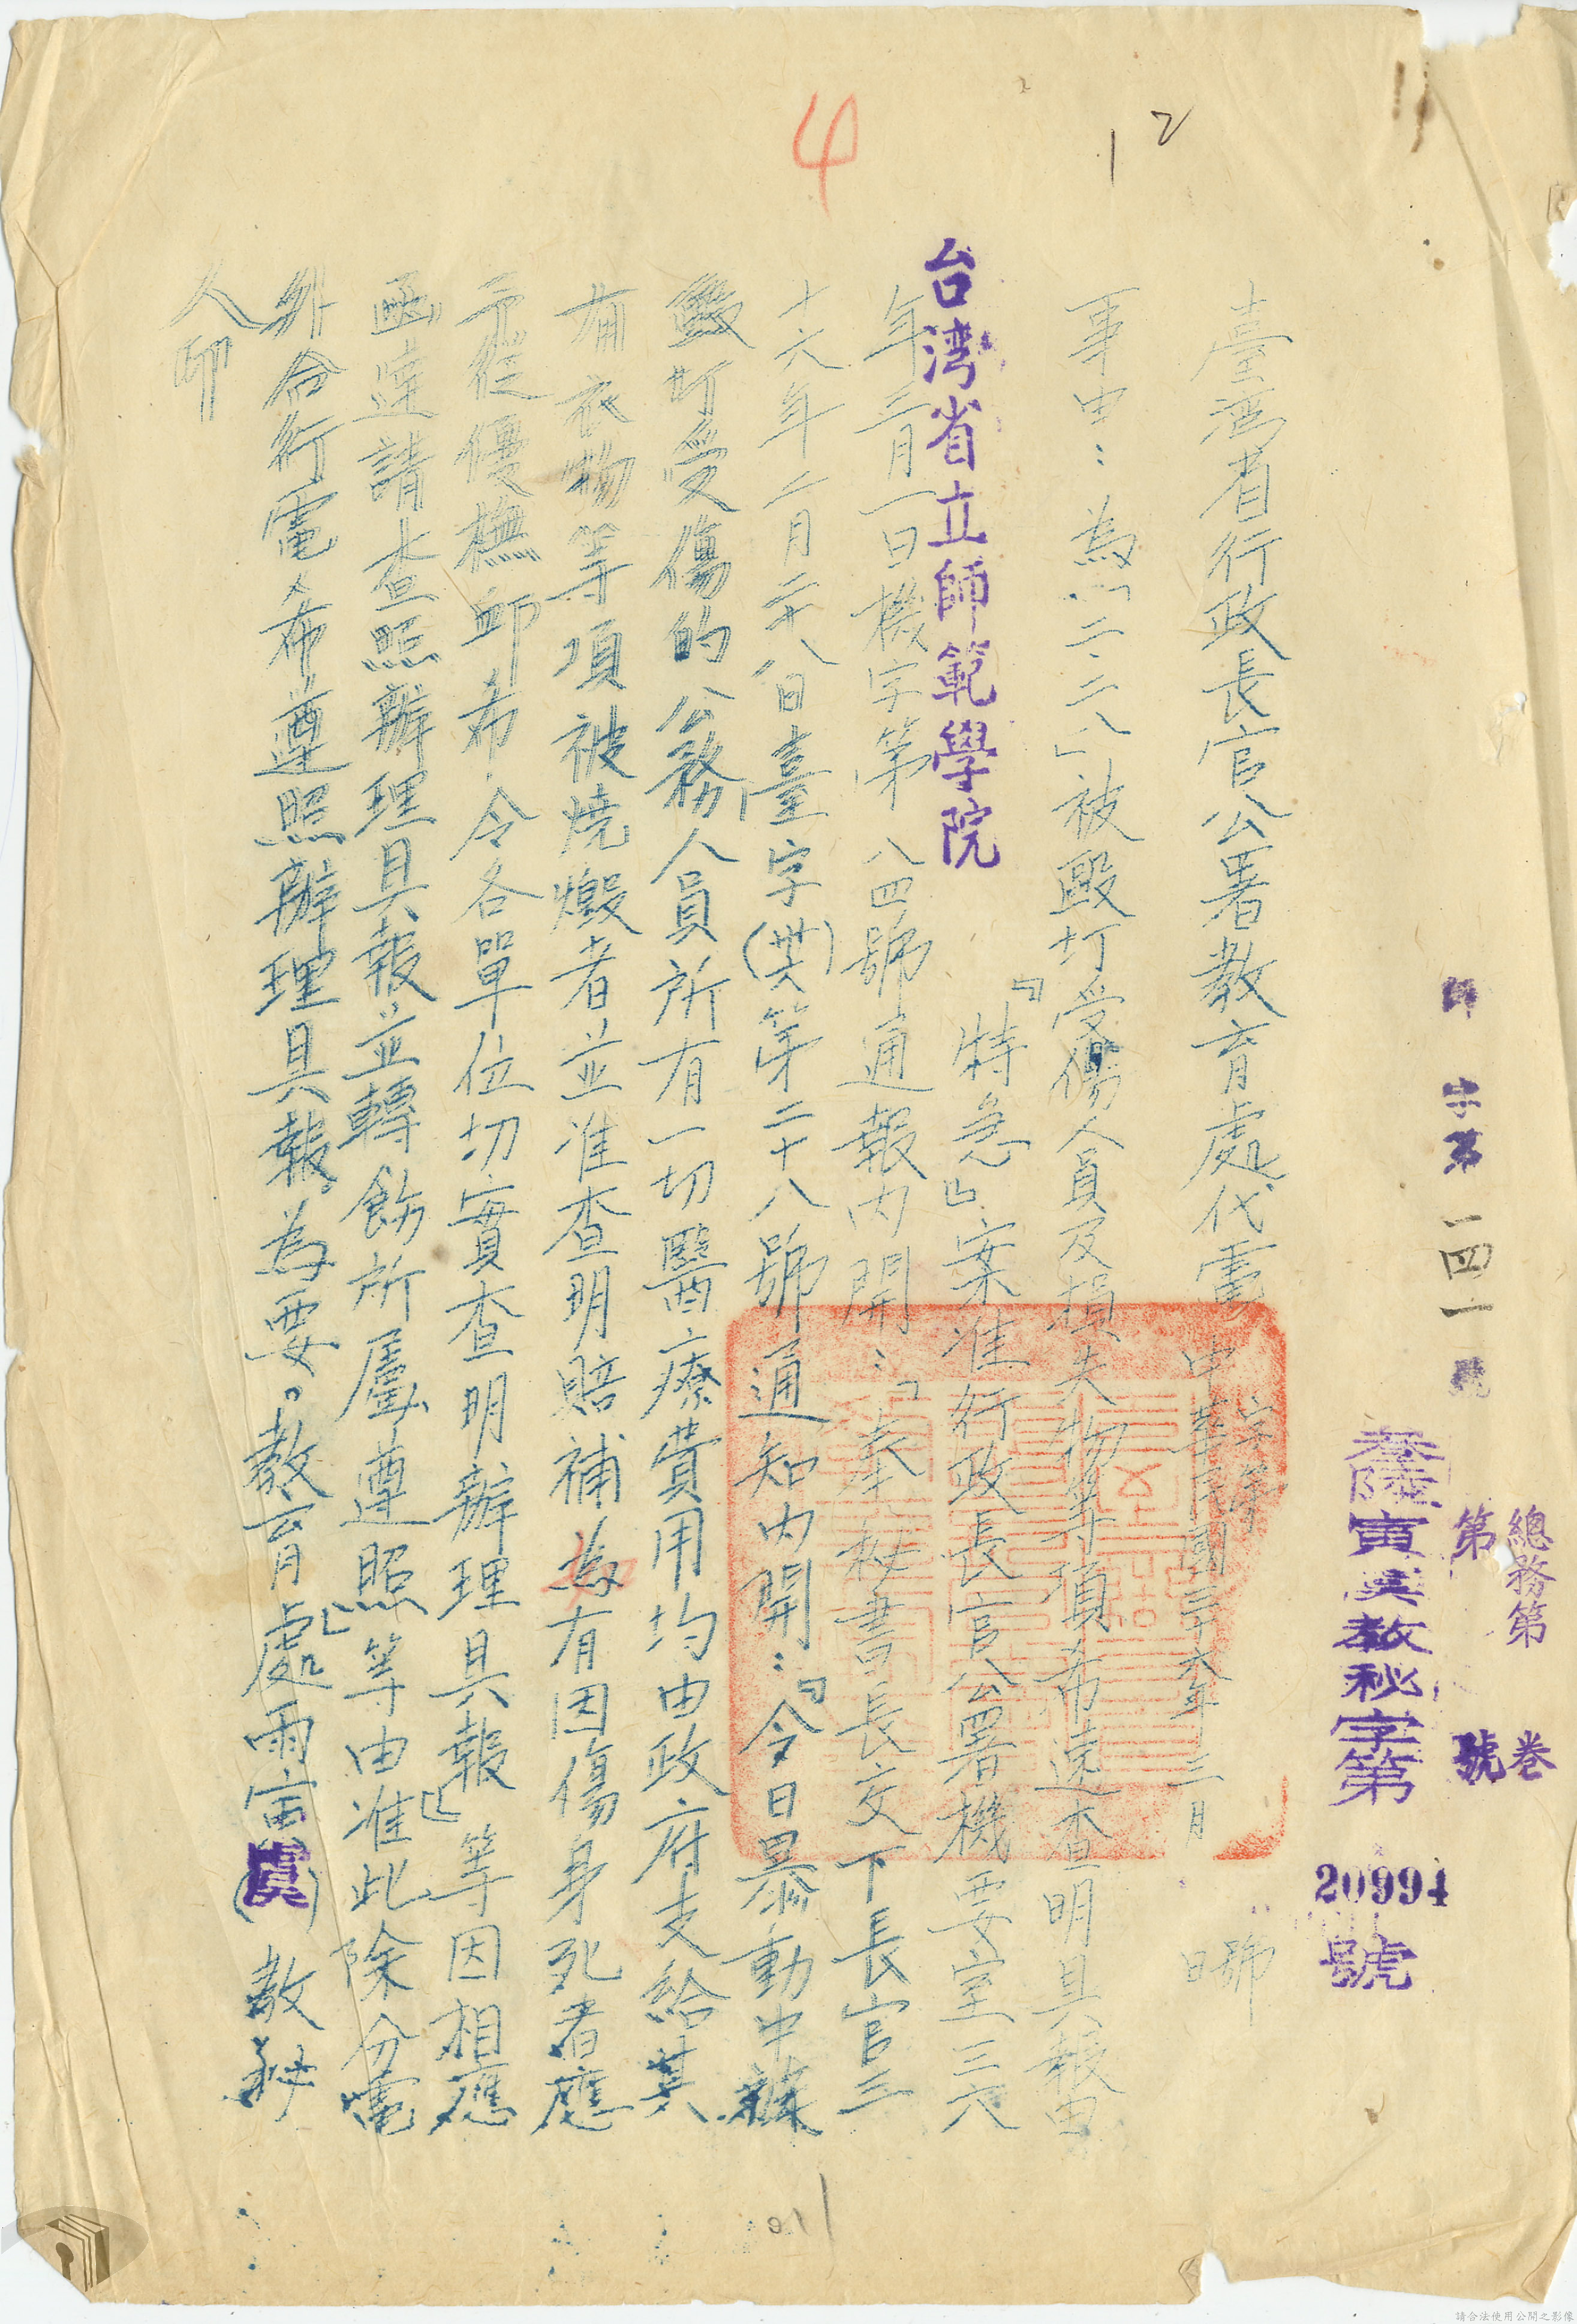 12
4
師 字第一四一號
總務第 卷
第 號
叁陸寅 教秘字第 20994 號
臺灣省行政長官公署教育處代電
字第 號
中華民國三十六年三月 日
事由:為「二·二八」被毆打受傷人員及損失物等項希速查明具報由
台湾省立師範學院
『特急』案准行政長官公署機要室三六
年三月一日機字第八四號通報內開:「奉秘書長交下長官三
十六年二月二十八日臺字(卅六)第二十八號通知內開:『今日暴動中被
毆打受傷的公務人員所有一切醫療費用均由政府支給其
有衣物等項被燒燬者並准查明賠補為有因傷身死者應
予從優撫卹希令各單位切實查明辦理具報』等因相應
函達請查照辦理具報並轉飭所屬遵照」等由准此除分電
外合行電希遵照辦理具報為要。教育處雨寅(虞)教秘
人印
請合法使用公開之影像